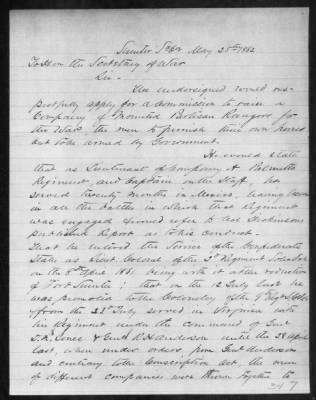 Sumter So Ca May 25th 1862
To Hon the Secretary of War
Sir -
The undersigned would res-
pectfully apply for a commission to raise a
Company of Mounted Partisan Rangers for
the War, the men to furnish their own horses
but to be armed by Government.
He would state
that as Lieutenant of Company A Palmetto
Regiment and Captain on the Staff, he
served twenty months in Mexico, having been
in all the battles in which that Regiment
was engaged & would refer to Col
Report as to his conduct.
That he entered the Service of the Confederate
States as Lieut. Colonel of the 2d Regiment So Ca Vols
on the 8th April 1861 being with it at the reduction
of Fort Sumter; that on the 12 July last he
was promoted to the Colonelcy of the 9 Regt
& from the 23d July served in Virginia with
his Regiment under the command of Genl
D. R. Jones & Genl R H Anderson until the 28 April
last, when under orders from Genl Anderson
and contrary to the Conscription act, the men
of different companies were thrown together to
347